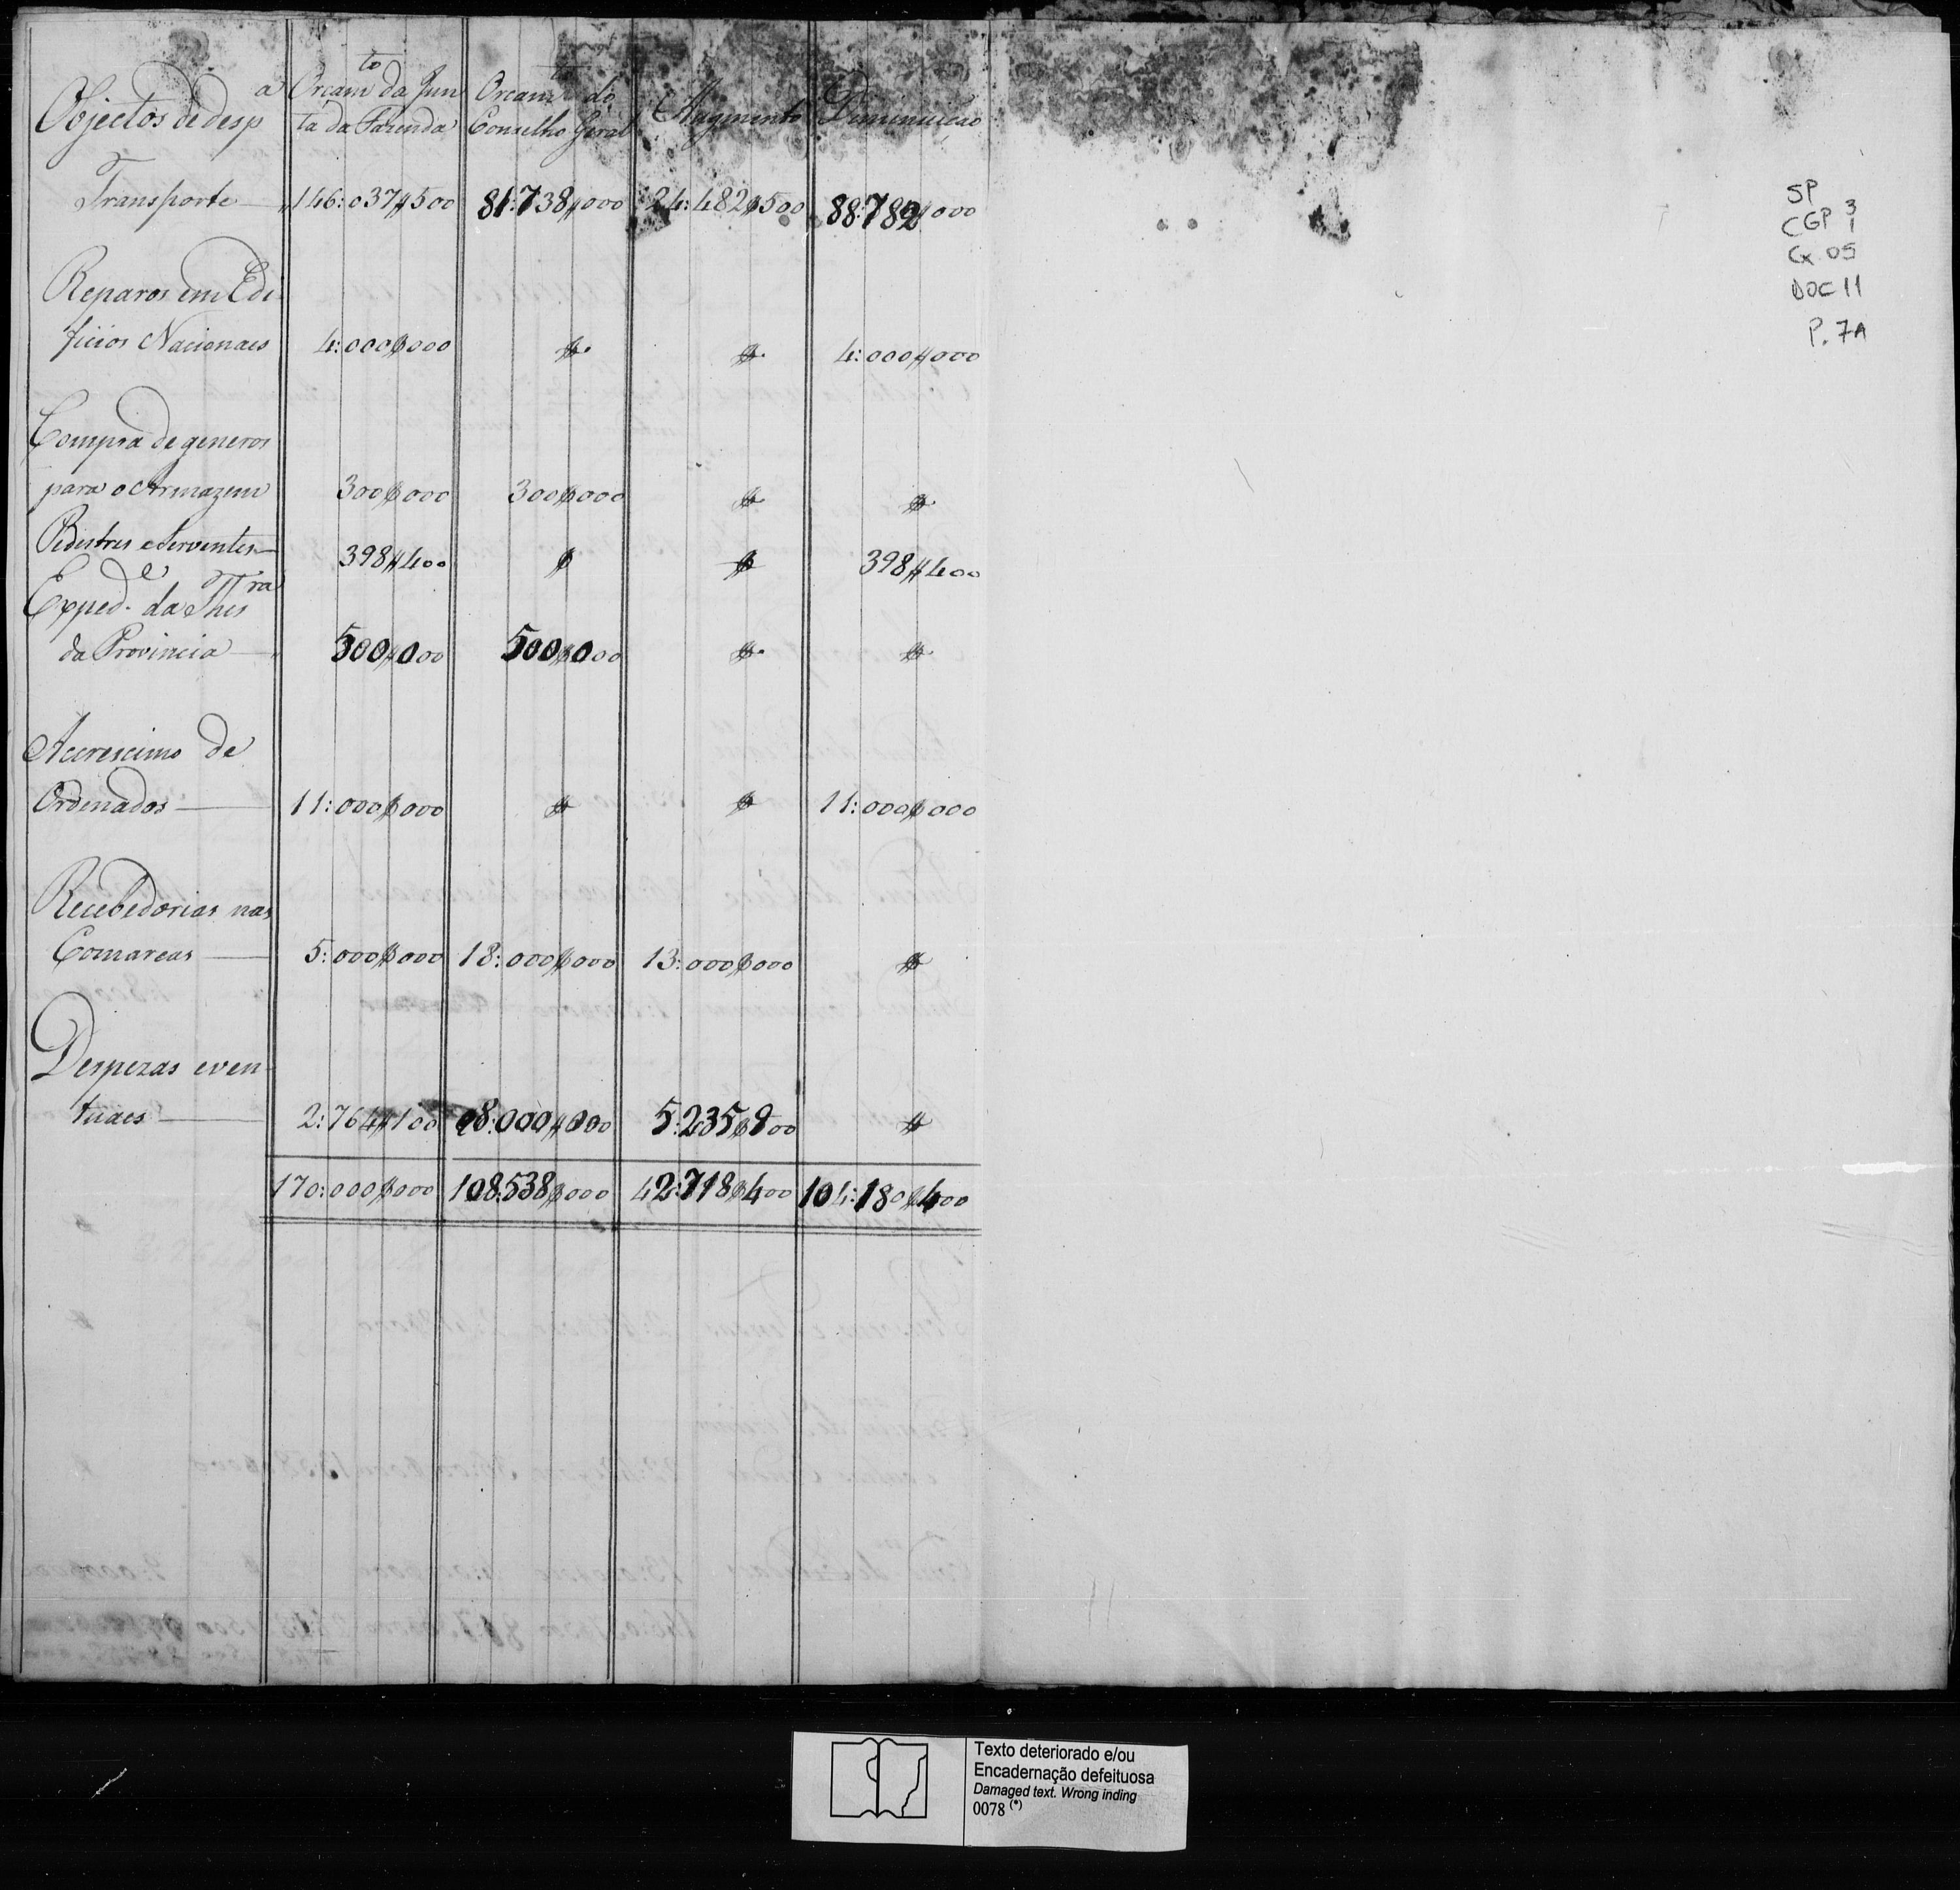 Objectos de desp.ª | Orcam.to da Jun | Orcam.to do | Augmento | Diminuicao
ta da Fazenda | Conselho Geral
Transporte — | 146:037$500 | 81:738$000 | 24:482$500 | 88:782$000
Reparos em Edi
ficios Nacionaes | 4:000$000 | $ | $ | 4:000$000
Compra de generos
para o Armazem | 300$000 | 300$000 | $ | $
Pedestres e Serventes — | 398$400 | $ | $ | 398$400
Exped.e da Thes.ra
da Provincia — | 500$000 | 500$000 | $ | $
Accrescimo de
Ordenados — | 11:000$000 | $ | $ | 11:000$000
Recebedorias nas
Comarcas — | 5:000$000 | 18:000$000 | 13:000$000 | $
Despezas even
tuaes — | 2:764$100 | 8:000$000 | 5:235$900 | $
170:000$000 | 108:538$000 | 42:718$400 | 104:180$400
SP
CGP 3
1
Cx 05
DOC 11
P. 7A
Texto deteriorado e/ou
Encadernação defeituosa
Damaged text. Wrong inding
0078 (*)